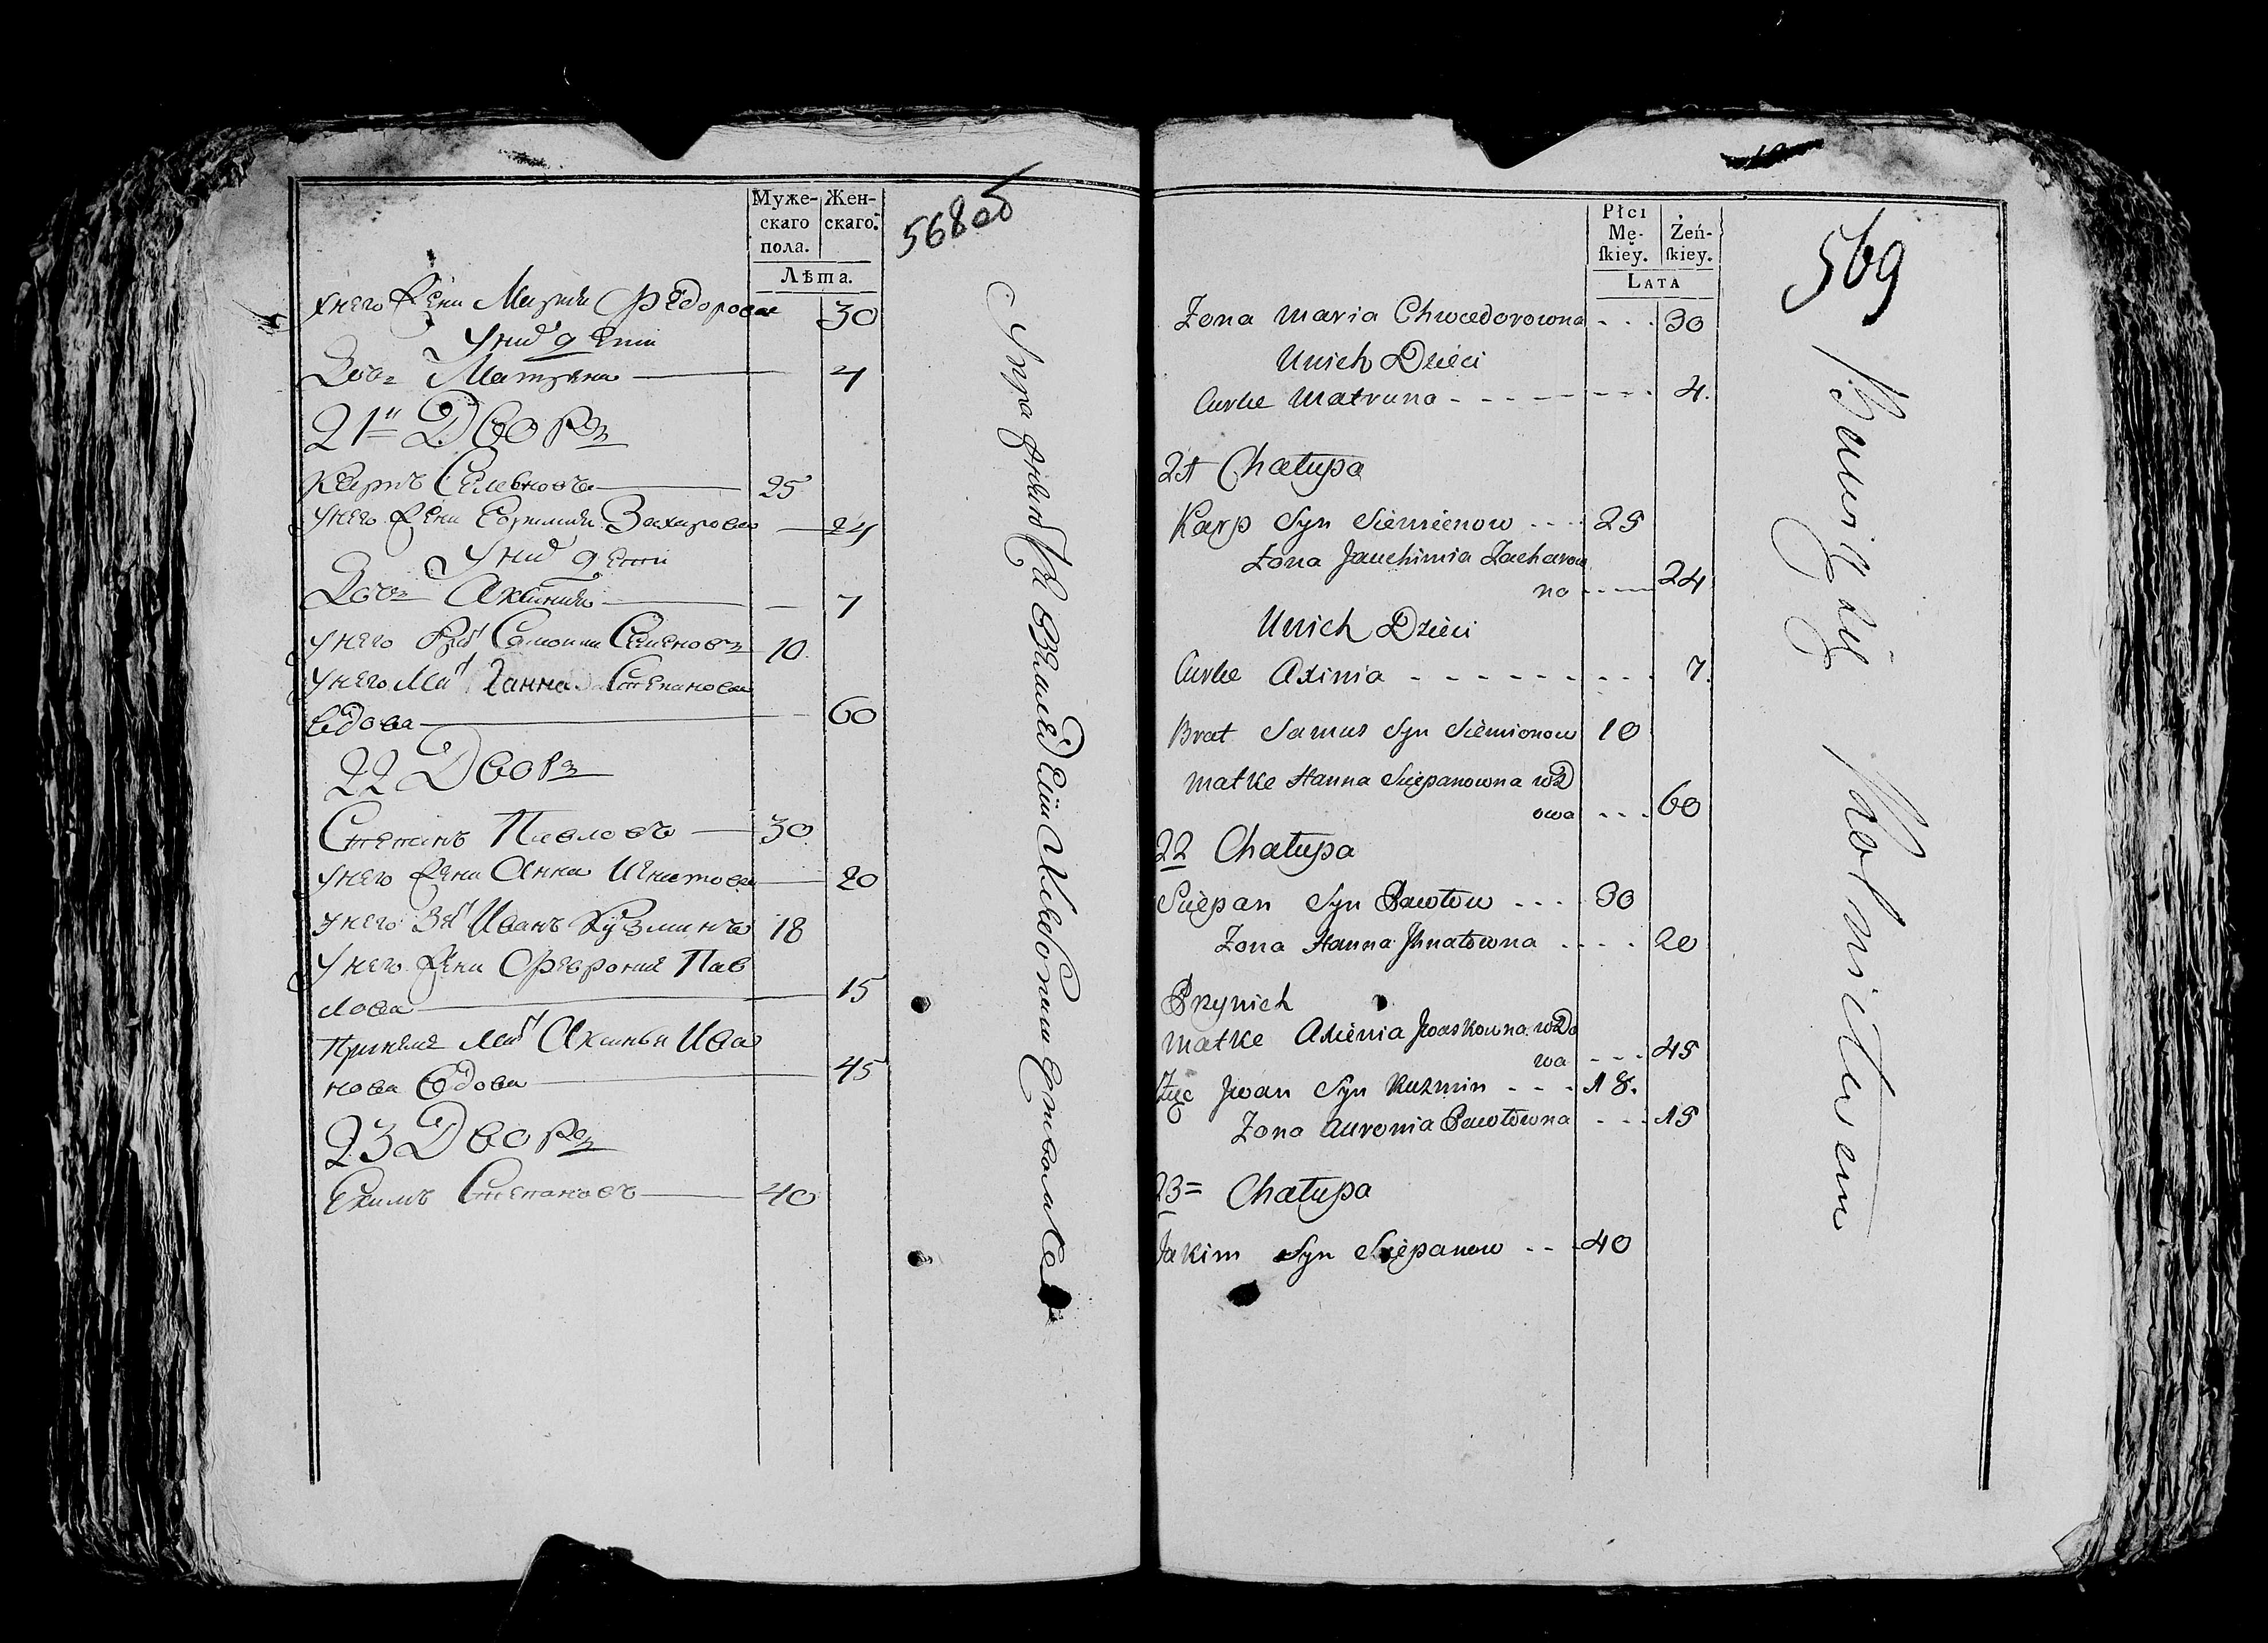 Муже-
скаго
пола.
Жен-
скаго.
Лѣта.
568об
унего Жена Марья Федорова 30
Уних дети
Доч: Матрена 4
21й Дворъ
Карпъ Семеновъ 25
унего Жена Евхимия Захарова 24
Уних дети
Дочь Аксинья 7
унего Бра Самоила Семеновъ 10
унего Ма Ганна Степанова
вдова 60
22 Дворъ
Степанъ Павловъ 30
унего Жена Анна Игнатова 20
унего Зя Иванъ Кузминъ 18
унего Жена Феврония Пав
лова 15
Мат Аксинья Ива
нова вдова 45
23 Дворъ
Ехимъ Степановъ 40
Płci
Mę-
skiey.
Żeń-
skiey.
LATA
569
Zona Maria Chwedorowna - - - 30
Unich Dzieci
Curke Matruna - - - - - - - - 4.
21 Chałupa
Karp Syn Siemienow - - - 25
Zona Jauchimia Zacharow
na - - - - 24
Unich Dzieci
Curke Axinia - - - - - - - - - 7.
Brat Samus Syn Siemionow 10
Matke Hanna Sciepanowna wd
owa - - - 60
22 Chałupa
Sciepan Syn Pawłow - - - 30
Zona Hanna Jhnatowna - - - - 20
Przynich
Matke Axienia Jwaskowna wdo
wa - - - 45
Zięc Jwan Syn Kuzmin - - - 18.
Zona Auronia Pawłowna - - - 15
23= Chałupa
Jakim Syn Sciepanow - - - 40